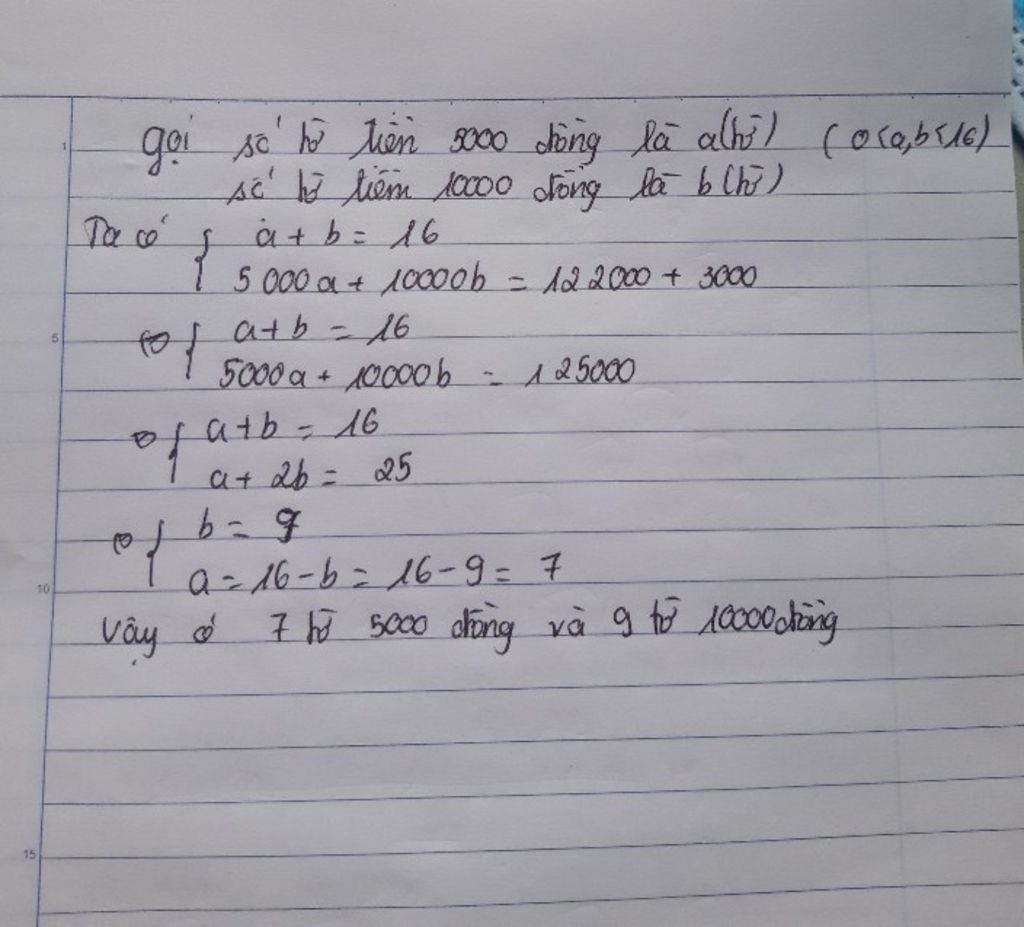 1
gọi số tờ tiền 5000 đồng là a(tờ) (0<a,b<16)
số tờ tiền 10000 đồng là b(tờ)
Ta có { a + b = 16
5000a + 10000b = 122000 + 3000
5
⇔ { a+b = 16
5000a + 10000b = 125000
⇔ { a+b = 16
a + 2b = 25
⇔ { b = 9
10
a = 16 - b = 16 - 9 = 7
Vậy có 7 tờ 5000 đồng và 9 tờ 10000 đồng
15